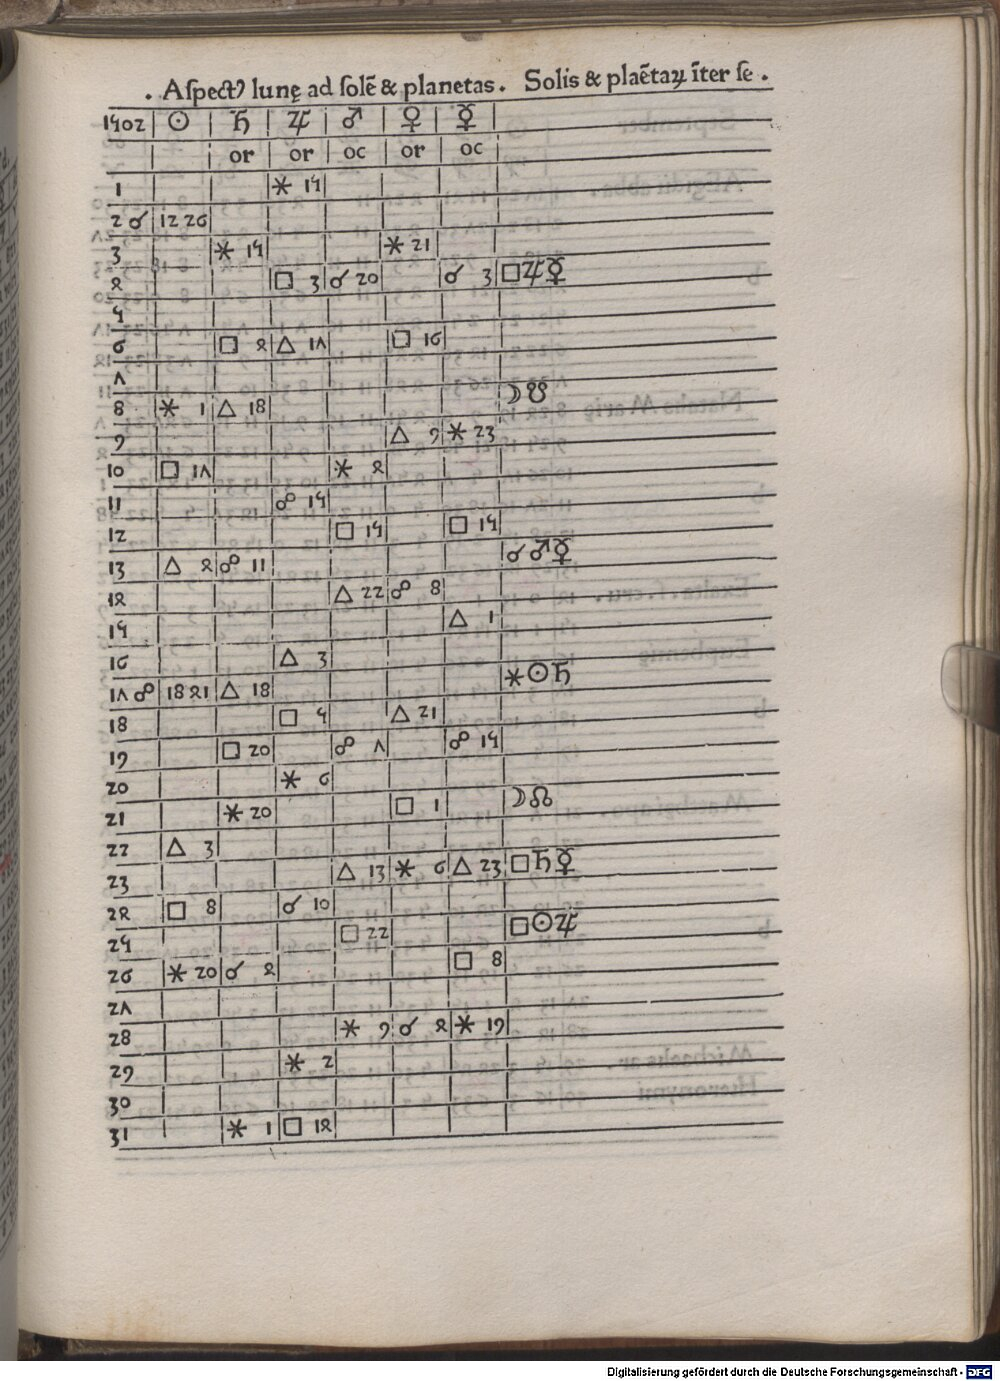 . Aspectꝰ lunę ad solē & planetas. Solis & plaētaꝝ īter se .
1502 ☉ ♄ ♃ ♂ ♀ ☿
or or oc or oc
1 ⚹ 15
2 ☌ 12 26
3 ⚹ 15 ⚹ 21
4 □ 3 ☌ 20 ☌ 3 □♃☿
5
6 □ 4 △ 17 □ 16
7
8 ⚹ 1 △ 18 ☽☋
9 △ 9 ⚹ 23
10 □ 17 ⚹ 4
11 ☍ 15
12 □ 15 □ 15
13 △ 4 ☍ 11 ☌♂☿
14 △ 22 ☍ 8
15 △ 1
16 △ 3
17 ☍ 18 41 △ 18 ⚹☉♄
18 □ 5 △ 21
19 □ 20 ☍ 7 ☍ 15
20 ⚹ 6
21 ⚹ 20 □ 1 ☽☊
22 △ 3
23 △ 13 ⚹ 6 △ 23 □♄☿
24 □ 8 ☌ 10
25 □ 22 □☉♃
26 ⚹ 20 ☌ 4 □ 8
27
28 ⚹ 9 ☌ 4 ⚹ 19
29 ⚹ 2
30
31 ⚹ 1 □ 14
Digitalisierung gefördert durch die Deutsche Forschungsgemeinschaft - DFG